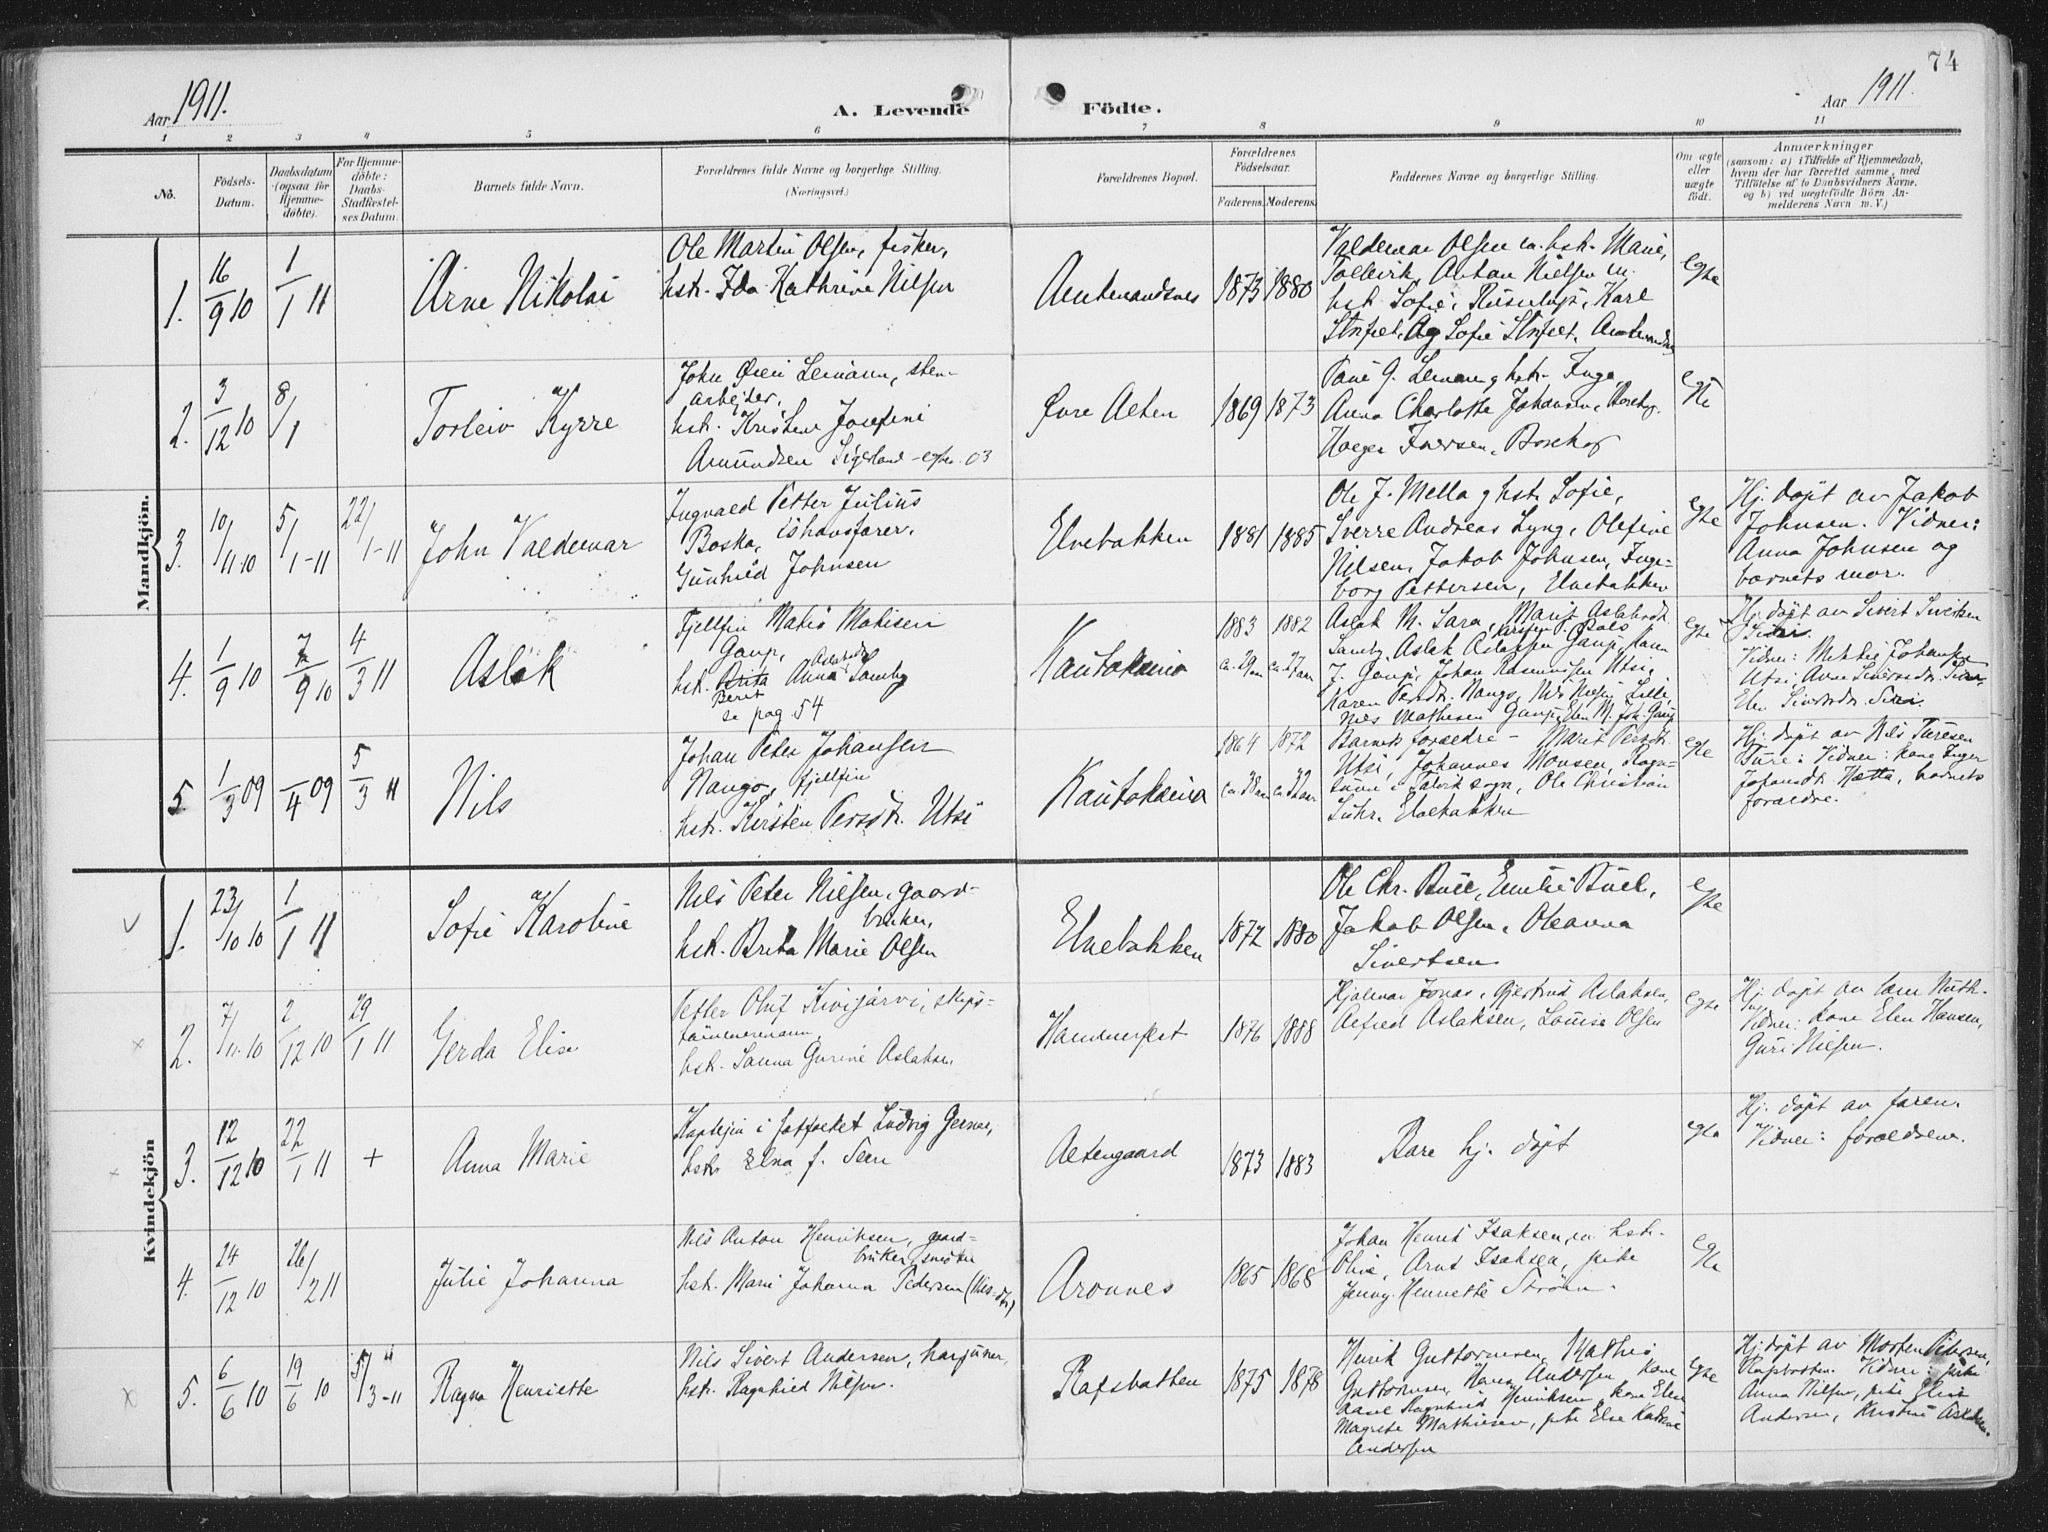 74
Aar 1911.
A. Levende Födte.
Aar 1911.
1 2 3 4 5 6 7 8 9 10 11
No.
Födsels-
Datum.
Daabsdatum
(ogsaa for
Hjemme-
döbte).
For Hjemme-
döbte:
Daabs-
Stadfæstel-
ses Datum.
Barnets fulde Navn.
Forældrenes fulde Navne og borgerlige Stilling.
(Næringsvei.)
Forældrenes Bopæl.
Forældrenes
Födselsaar.
Faderens. Moderens.
Faddernes Navne og borgerlige Stilling.
Om ægte
eller
uægte
födt.
Anmærkninger
(saasom: a) i Tilfælde af Hjemmedaab,
hvem der har forrettet samme, med
Tilföielse af to Daabsvidners Navne,
og b) ved uægtefödte Börn An-
melderens Navn m. V.)
Mandkjön.
1. 16/9 10 1/1 11 Arne Nikolai
Ole Martin Olsen, fisker,
hstr. Ida Kathrine Nilsen
Amtmandsnes 1873 1880
Valdemar Olsen m. hstr. Marie,
Tollevik, Anton Nielsen m.
hst. Sofie, Karl
Og Sofie
egte
2. 3/12 10 8/1 Torleiv Kyrre
John Leimann, sten-
arbejder,
hstr. Kristene Josefine
Amundsen egtev. 03
Øvre Alten 1869 1873
G. Leimann g hstr. Inga,
Anna Charlotte Johansen,
Iversen, Bosekop
egte
3. 10/11-10 5/1-11 22/1-11 John Valdemar
Ingvald Petter Julius
Boska, ishavsfarer,
Gunhild Johnsen
Elvebakken 1881 1885
Ole J. Mella g hstr. Sofie,
Sverre Andreas Lyng, Olefine
Nilsen, Jakob Johnsen, Inge-
borg Pettersen, Elvebakken
egte
Hj. døpt av Jakob
Johnsen. Vidner:
Anna Johnsen og
barnets mor.
4. 1/9 10 7/9 10 4/3 11 Aslak
Fjellfin Matis Matisen
Gaup,
hst. Brita Anna Aslaksdr. Samby
Berit
se pag. 54
Kautokeino 1883 1882
ca. 29 aar ca. 27 aar
Aslak M. Sara, Marit Aslaksdr.
Samby, Aslak Aslaksen Gaup,
J. Gaup, Johan Rasmussen Utsi,
Karen Persdr. Nango,
Nils Mathisen Gaup, Elen M. Joh. Gaup
egte
Hj. døpt av Sivert Sivertsen
Vidner: Mikkel Johansen
Utsi,
Elen Sivertsdr.
5 1/3 09 /4 09 5/3 11 Nils
Johan Peter Johansen
Nango, Fjellfin
hstr. Kirsten Persdtr. Utsi
Kautokeino 1864 1872
ca. 38 aar ca. 32 aar
Barnets forældre - Marit Persdtr.
Utsi, Johannes Monsen,
i Talvik sogn, Ole Christian
Suhr, Elvebakken
egte
Hj. døpt av Nils Turesen
Ture: Vidner: kone Inger
Johansdr. Hætta, barnets
forældre.
Kvindekjön
v 1. 23/10 10 1/1 11 Sofie Karoline
Nils Peter Nielsen, gaard-
bruker,
hstr. Brita Marie Olsen
Elvebakken 1872 1880
Ole Chr. Buel, Emilie Buel,
Jakob Olsen, Oleanna
Sivertsen
egte
x 2. 7/11-10 2/12 10 29/1 11 Gerda Elise
Petter Oluf Kivijärvi, skips-
tømmermann
hstr. Sanna Gurine Aslaksen
Hammerfest 1876 1888
Hjalmar Jonas, Gjertrud Aslaksen,
Alfred Aslaksen, Louise Olsen
egte
Hj. døpt av
Vidner: Kone Elen Hansen,
Guri Nilsen.
x 3. 12/12 10 22/1 11 + Anna Marie
Kaptejn i Ludvig
hstr Elna f.
Altengaard 1873 1883
Bare hj. døpt
egte
Hj. døpt av faren.
Vidner: forældrene.
4. 24/12 10 26/2 11 Julie Johanna
Nils Anton Henriksen, gaard-
bruker,
hst. Marie Johanna Pedersen (Nils-dtr)
Aronnes 1865 1868
Johan Henrik Isaksen m hstr.
Oline, Arnt Isaksen, pike
Jenny Henriette Strøm.
egte
x 5. 6/6 10 19/6 10 5/3-11 Ragna Henriette
Nils Sivert Andersen,
hstr. Ragnhild Nilsen.
Rafsbotten 1875 1878
Henrik Guttormsen, Mathis
Guttormsen, Hans Andersen kone
Ragnhild Henriksen, kone Elen
Magrete Mathisen, pike Else Katrine
Andersen
egte
Hj. døpt av Morten Pedersen,
Rafsbotten. Vidner: pike
Anna Nilsen, pike Elise
Andersen, Kristine